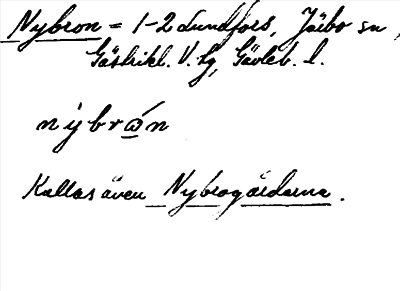 Nybron = 1-2 Lundfors, Järbo sn,
Gästrikl. V. tg, Gävleb. l.
nýbrώn
Kallas även Nybrogårdarna.